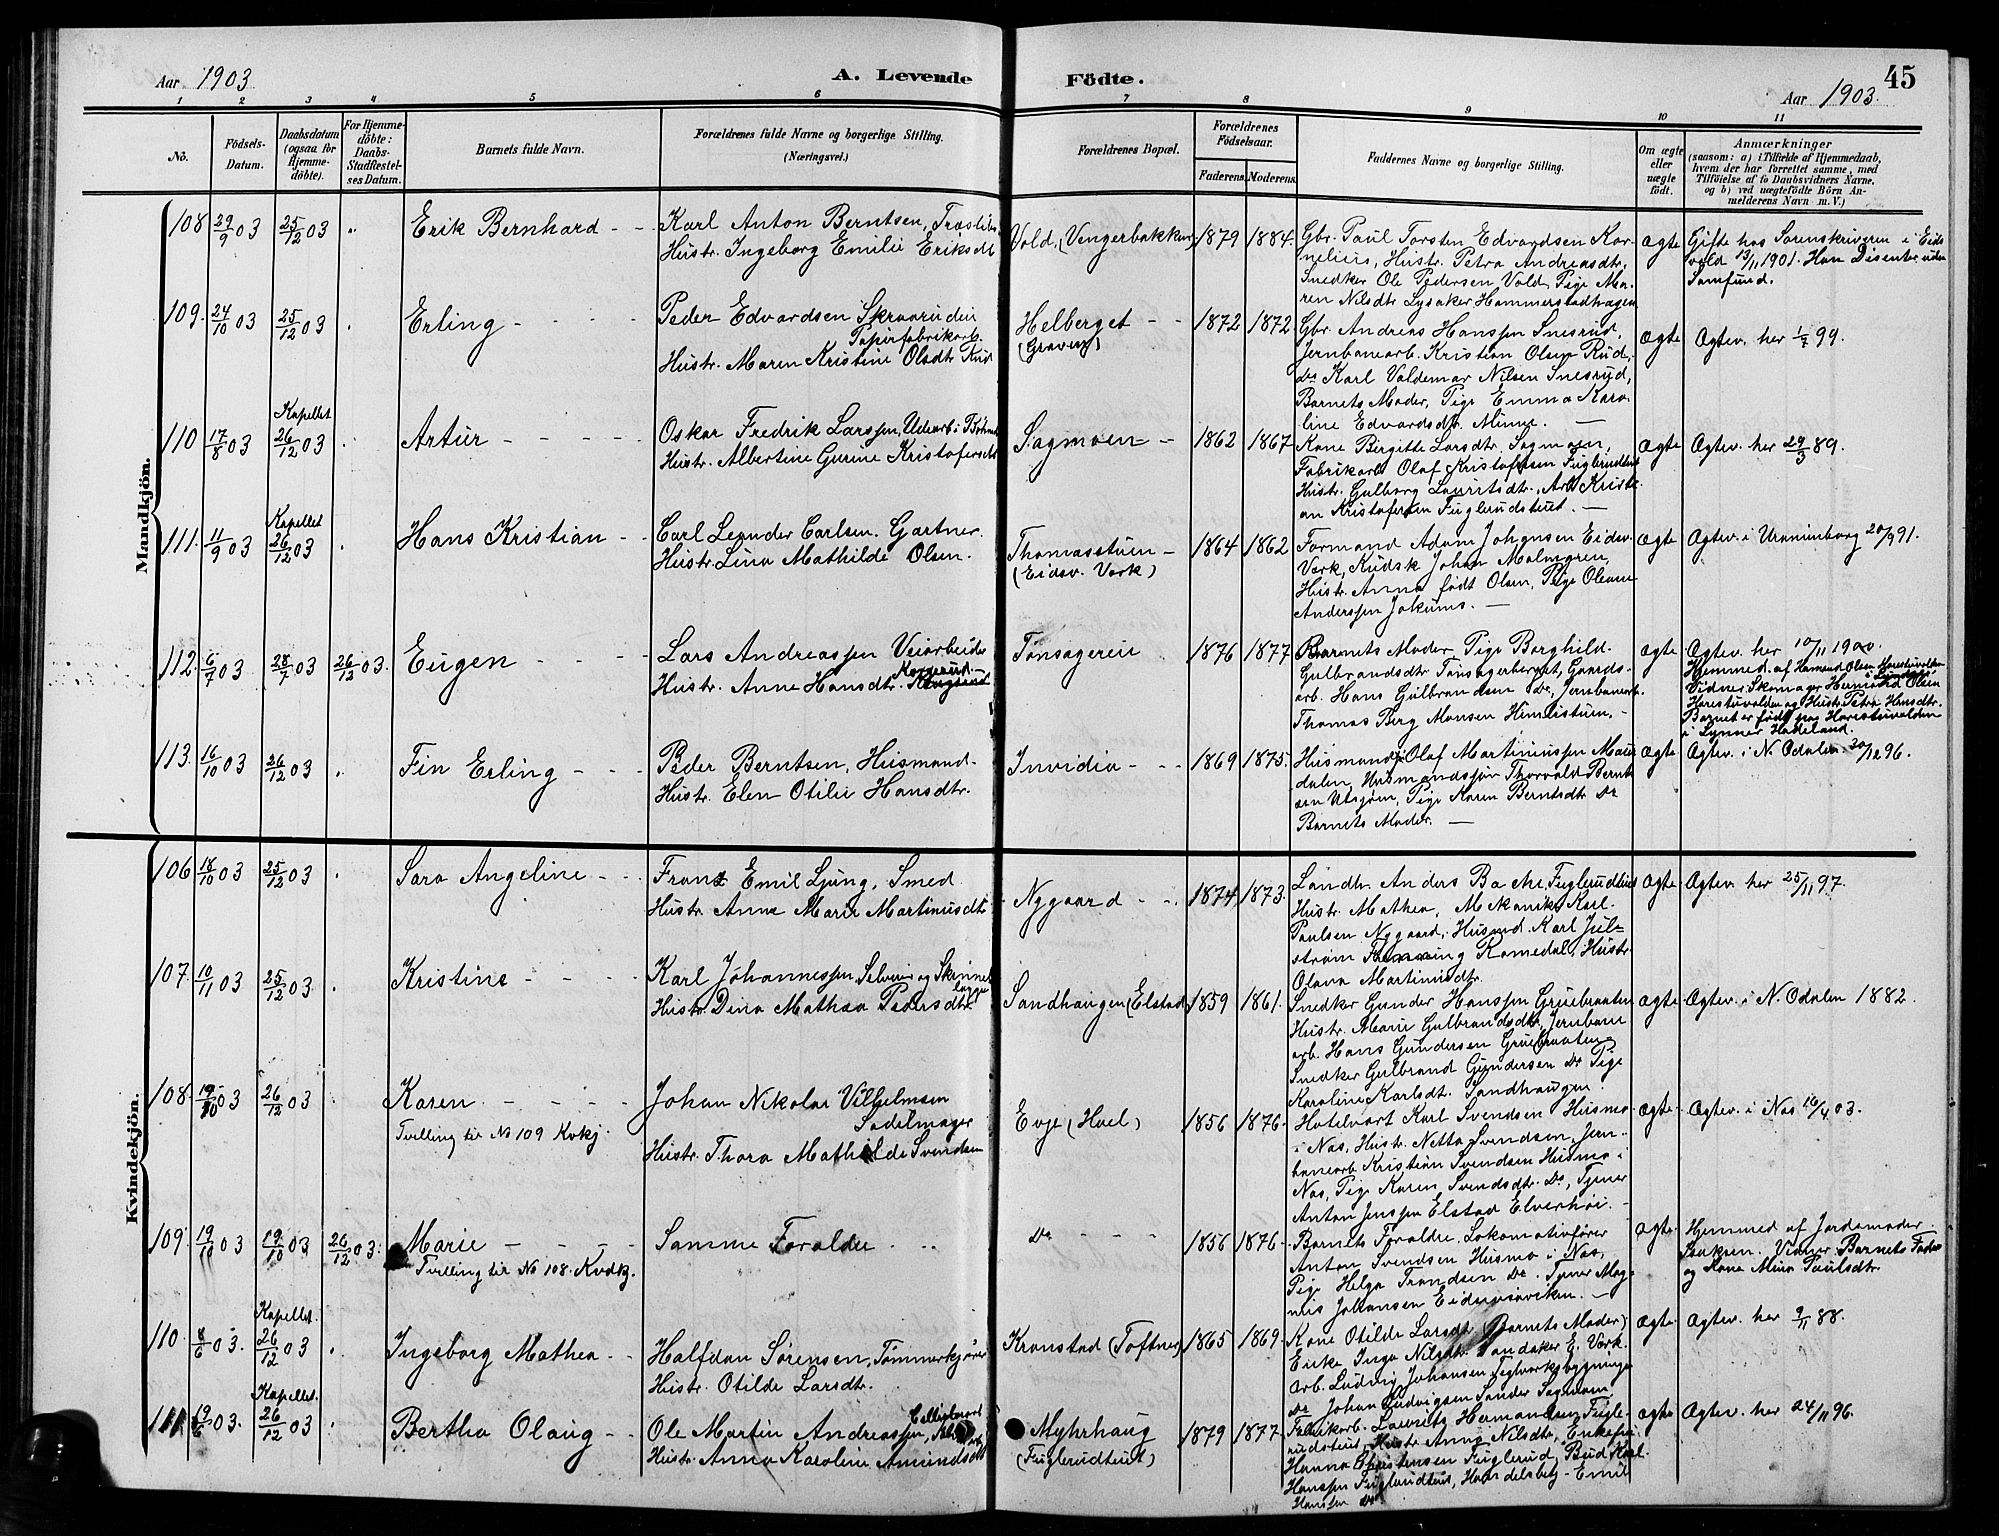 Aar 1903
A. Levende Födte.
45
Aar 1903.
1 2 3 4 5 6 7 8 9 10 11
No.
Födsels-Datum.
Daabsdatum (ogsaa for Hjemmedöbte).
For Hjemmedöbte: Daabs-Stadfæstelses Datum.
Barnets fulde Navn.
Forældrenes fulde Navne og borgerlige Stilling.
(Næringsvei.)
Forældrenes Bopæl.
Forældrenes Födselsaar.
Faderens. Moderens.
Faddernes Navne og borgerlige Stilling.
Om ægte eller uægte födt.
Anmærkninger
(saasom: a) i Tilfælde af Hjemmedaab,
hvem der har forrettet samme, med
Tilföielse af to Daabsvidners Navne,
og b) ved uægtefödte Börn An-
melderens Navn m. V.)
Mandkjön.
108 29/9 03 25/12 03 Erik Bernhard
Karl Anton Berntsen,
Hustr. Ingeborg Emilie Eriksdt.
Vold, (Vengerbakken) 1879 1884.
Gbr. Paul Torsten Edvardsen Kor-
nelius, Hustr. Petra Andreasdtr,
Snedker Ole Pedersen Vold, Pige Ma-
ren Nilsdtr Lysaker Hammerstadhagen
Ægte
Gifte hos Sorenskriveren i Eids
vold 13/11 1901. Han Disenter uden
Samfund.
109. 24/10 03 25/12 03 Erling
Peder Edvardsen
Papirfabrikarb.
Hustr. Maren Kristine Olsdtr
Helberget 1872 1872
Gbr. Andreas Hanssen Snesrud,
Jernbanearb. Kristian Olsen Rud,
Do Karl Valdemar Nilsen Snesrud,
Barnets Moder, Pige Emma Karo-
line Edvardsdt. Minne.
Ægte Ægtev. her 1/7 99.
110 17/8 03 Kapellet 26/12 03 Artur
Oskar Fredrik Larssen,
Hustr. Albertine Gurine Kristofersdt
Sagmoen 1862 1867
Kone Birgitte Larsdtr. Sagmoen,
Fabrikarb Olaf Kristofersen Fuglerudteiet
Hustr. Gulborg Lauritsdtr, Arb. Kristi-
an Kristofersen Fuglerudsteiet.
Ægte Ægtev. her 29/3 89.
111. 11/9 03 Kapellet 26/12 03 Hans Kristian
Carl Leander Carlsen. Gartner
Hustr. Lina Mathilde Olsen.
Thomasstuen
(Eidsv. Værk) 1864 1862
Formand Adam Johansen Eidsv.
Værk, Kudsk Johan Malmgren,
Hustr. Anna født Olsen, Pige Oleane
Anderssen Jokums.
Ægte Ægtev. i Uranienborg 20/9 91.
112. 6/7 03 28/7 03 26/12 03. Eugen
Lars Andreassen Veiarbeider
Hustr. Anne Hansdtr.
Tønsagereie 1876 1877
Barnets Moder, Pige Borghild
Gulbrandsdtr Tønsagerberget, Gaards-
arb. Hans Gulbrandsen Do, Jernbanearb.
Thomas Berg Monsen Himlistuen,
Ægte Ægtev. her 10/11 1900.
Hjemmed. af
Vidner: Skomager Olsen
og Hustr. Petra Hansdtr.
Barnet er født paa
i Lynner Hadeland.
113. 16/10 03 26/12 03 Fin Erling
Peder Berntsen, Husmand
Hustr. Elen Otilie Hansdtr.
Invidia 1869 1875.
Husmand Olaf Martiniussen
dalen, Husmandssøn Thorvald Bernt-
sen Utsjøen, Pige Karen Berntsdtr Do
Barnets Moder.
Ægte Ægtev. i N. Odalen 30/12 96.
Kvindekjön.
106 18/10 03 25/12 03 Sara Angeline
Frans Emil Ljung, Smed
Hustr. Anne Marie Martinusdtr
Nygaard 1874 1873.
Landh. Anders Bakke, Fuglerudteiet
Hustr. Mathea, Mekaniker Karl
Paulsen Nygaard, Husmd. Karl Jul-
strøm Romedal, Hustr.
Olava Martinusdtr.
Ægte Ægtev. her 25/11 97.
107. 10/11 03 25/12 03 Kristine
Karl Johannessen Selveier og
Hustr. Dina Mathea Pedersdtr
Sandhaugen (Elstad) 1859 1861.
Snedker Gunder Hanssen Gruebraaten
Hustr. Marie Gulbrandsdtr, Jernbane
arb. Hans Gundersen Gruebraaten
Snedker Gulbrand Gundersen Do Pige
Karoline Karlsdt. Sandhaugen.
Ægte Ægtev. i N. Odalen 1882.
108. 19/10 03 26/12 03 Karen
Tvilling til No 109 Kvkj.
Johan Nikolai Vilhelmsen
Sadelmager
Hustr. Thora Mathilde Svendsen
Evje (Hoel) 1856 1876
Hotelvært Karl Svendsen Husmo
i Næs, Hustr. Netta Svendsen, Jern-
banearb Kristian Svendsen Husmo i
Næs, Pige Karen Svendsdtr. Do, Tjener
Anton Jenssen Elstad Elverhøi.
Ægte Ægtev. i Næs 16/4 03.
109. 19/10 03 19/10 03 26/12 03. Marie
Tvilling til No 108. Kvdkj.
Samme Forældre
Do 1856 1876
Barnets Forældre, Lokomotivfører
Anton Svendsen Husmo i Næs,
Pige Helga Trondsen Do. Tjener Mag-
nus Johansen
Ægte Hjemmed af Jordemoder
Vidner Barnets Fader
og Kone Paulsdtr.
110. 8/6 03. Kapellet 26/12 03 Ingeborg Mathea
Halfdan Sørensen, Tømmerkjører
Hustr. Otilde Larsdtr.
Kronstad (Toftner) 1865 1869
Kone Otilde Larsdtr (Barnets Moder)
Enke Inga Nilsdtr. E. Værk.
Arb. Ludvig Johansen
Do Johan Ludvigsen
Ægte. Ægtev. her 9/11 88.
111 19/6 03. Kapellet. 26/12 03 Bertha Olaug
Ole Martin Andreassen,
Hustr. Anna Karoline Amundsdt
Myhrhaug
(Fuglerudteiet) 1879 1877
Fabrikarb. Laurits Hermandsen Fugle-
rudsteiet, Hustr Anna Nilsdtr, Enkefru
Hanna Christensen Fuglerud, Bud Karl
Hanssen Fuglerudteiet, Handelsbetj. Emil
Hanssen Do
Ægte Ægtev. her 24/11 96.